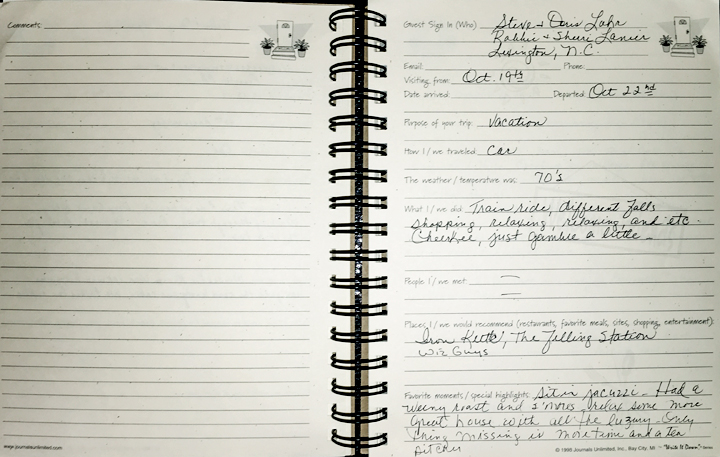 Comments:
www.journalsunlimited.com
Guest Sign In (Who) Steve + Doris Lahr
Robbie + Sheri Lanier
Lexington, N.C.
Email: Phone:
Visiting from: Oct. 19th
Date arrived: Departed: Oct 22nd
Purpose of your trip: vacation
How I / we traveled: car
The weather / temperature was: 70's
What I / we did: Train ride, different falls
shopping, relaxing, relaxing, and etc.
just gamble a little
People I / we met:
Places I / we would recommend (restaurants, favorite meals, sites, shopping, entertainment):
Iron The Filling Station
Wiz Guys
Favorite moments / special highlights: Sit in jacuzzi. Had a
weeny roast and s'mores, relax some more
Great house with all the luxury. Only
thing missing is more time and a tea
pitcher
© 1998 Journals Unlimited, Inc., Bay City, MI ~ "Write It Down" ~ Series